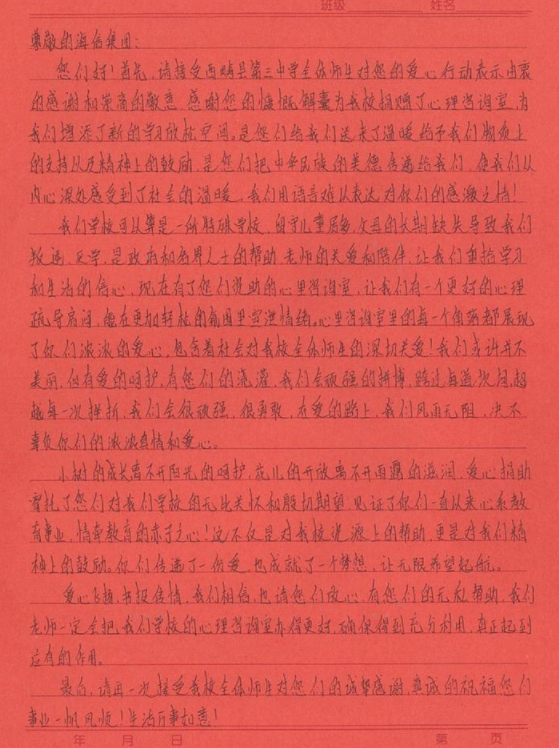 班级 姓名
尊敬的海信集团：
您们好！首先，请接受西畴县第三中学全体师生对您的爱心行动表示由衷
的感谢和崇高的敬意，感谢您的慷慨解囊为我校捐赠了心理咨询室，为
我们增添了新的学习放松空间。是您们给我们送来了温暖给予我们物质上
的支持以及精神上的鼓励，是您们把中华民族的美德传递给我们，使我们从
内心深处感受到了社会的温暖，我们用语言难以表达对你们的感激之情！
我们学校可以算是一所特殊学校，留守儿童居多，父母的长期缺失导致我们
叛逆、厌学，是政府和各界人士的帮助，老师的关爱和陪伴，让我们重拾学习
和生活的信心，现在有了您们援助的心里咨询室，让我们有一个更好的心理
疏导房间，能在更加轻松的氛围里宣泄情绪。心里咨询室里的每一个角落都展现
了你们浓浓的爱心，包含着社会对我校全体师生的深切关爱！我们或许并不
美丽，但有爱的呵护，有您们的浇灌，我们会顽强的拼搏，跨过每道坎间，超
越每一次挫折，我们会很顽强，很勇敢，在爱的路上，我们风雨无阻，决不
辜负你们的浓浓真情和爱心。
小树的成长离不开阳光的呵护，花儿的开放离不开雨露的滋润，爱心捐助
寄托了您们对我们学校的无比关怀和殷切期望，见证了你们一直以来心系教
育事业，情牵教育的赤子之心！这不仅是对我校资源上的帮助，更是对我们精
神上的鼓励。你们传递了一份爱，也成就了一个梦想，让无限希望起航。
爱心飞扬，书投真情，我们相信，也请您们放心，有您们的无私帮助，我们
老师一定会把我们学校的心理咨询室办得更好，确保得到充分利用，真正起到
应有的作用。
最后，请再一次接受我校全体师生对您们的诚挚感谢，真诚的祝福您们
事业一帆风顺！生活万事如意！
年 月 日 第 页